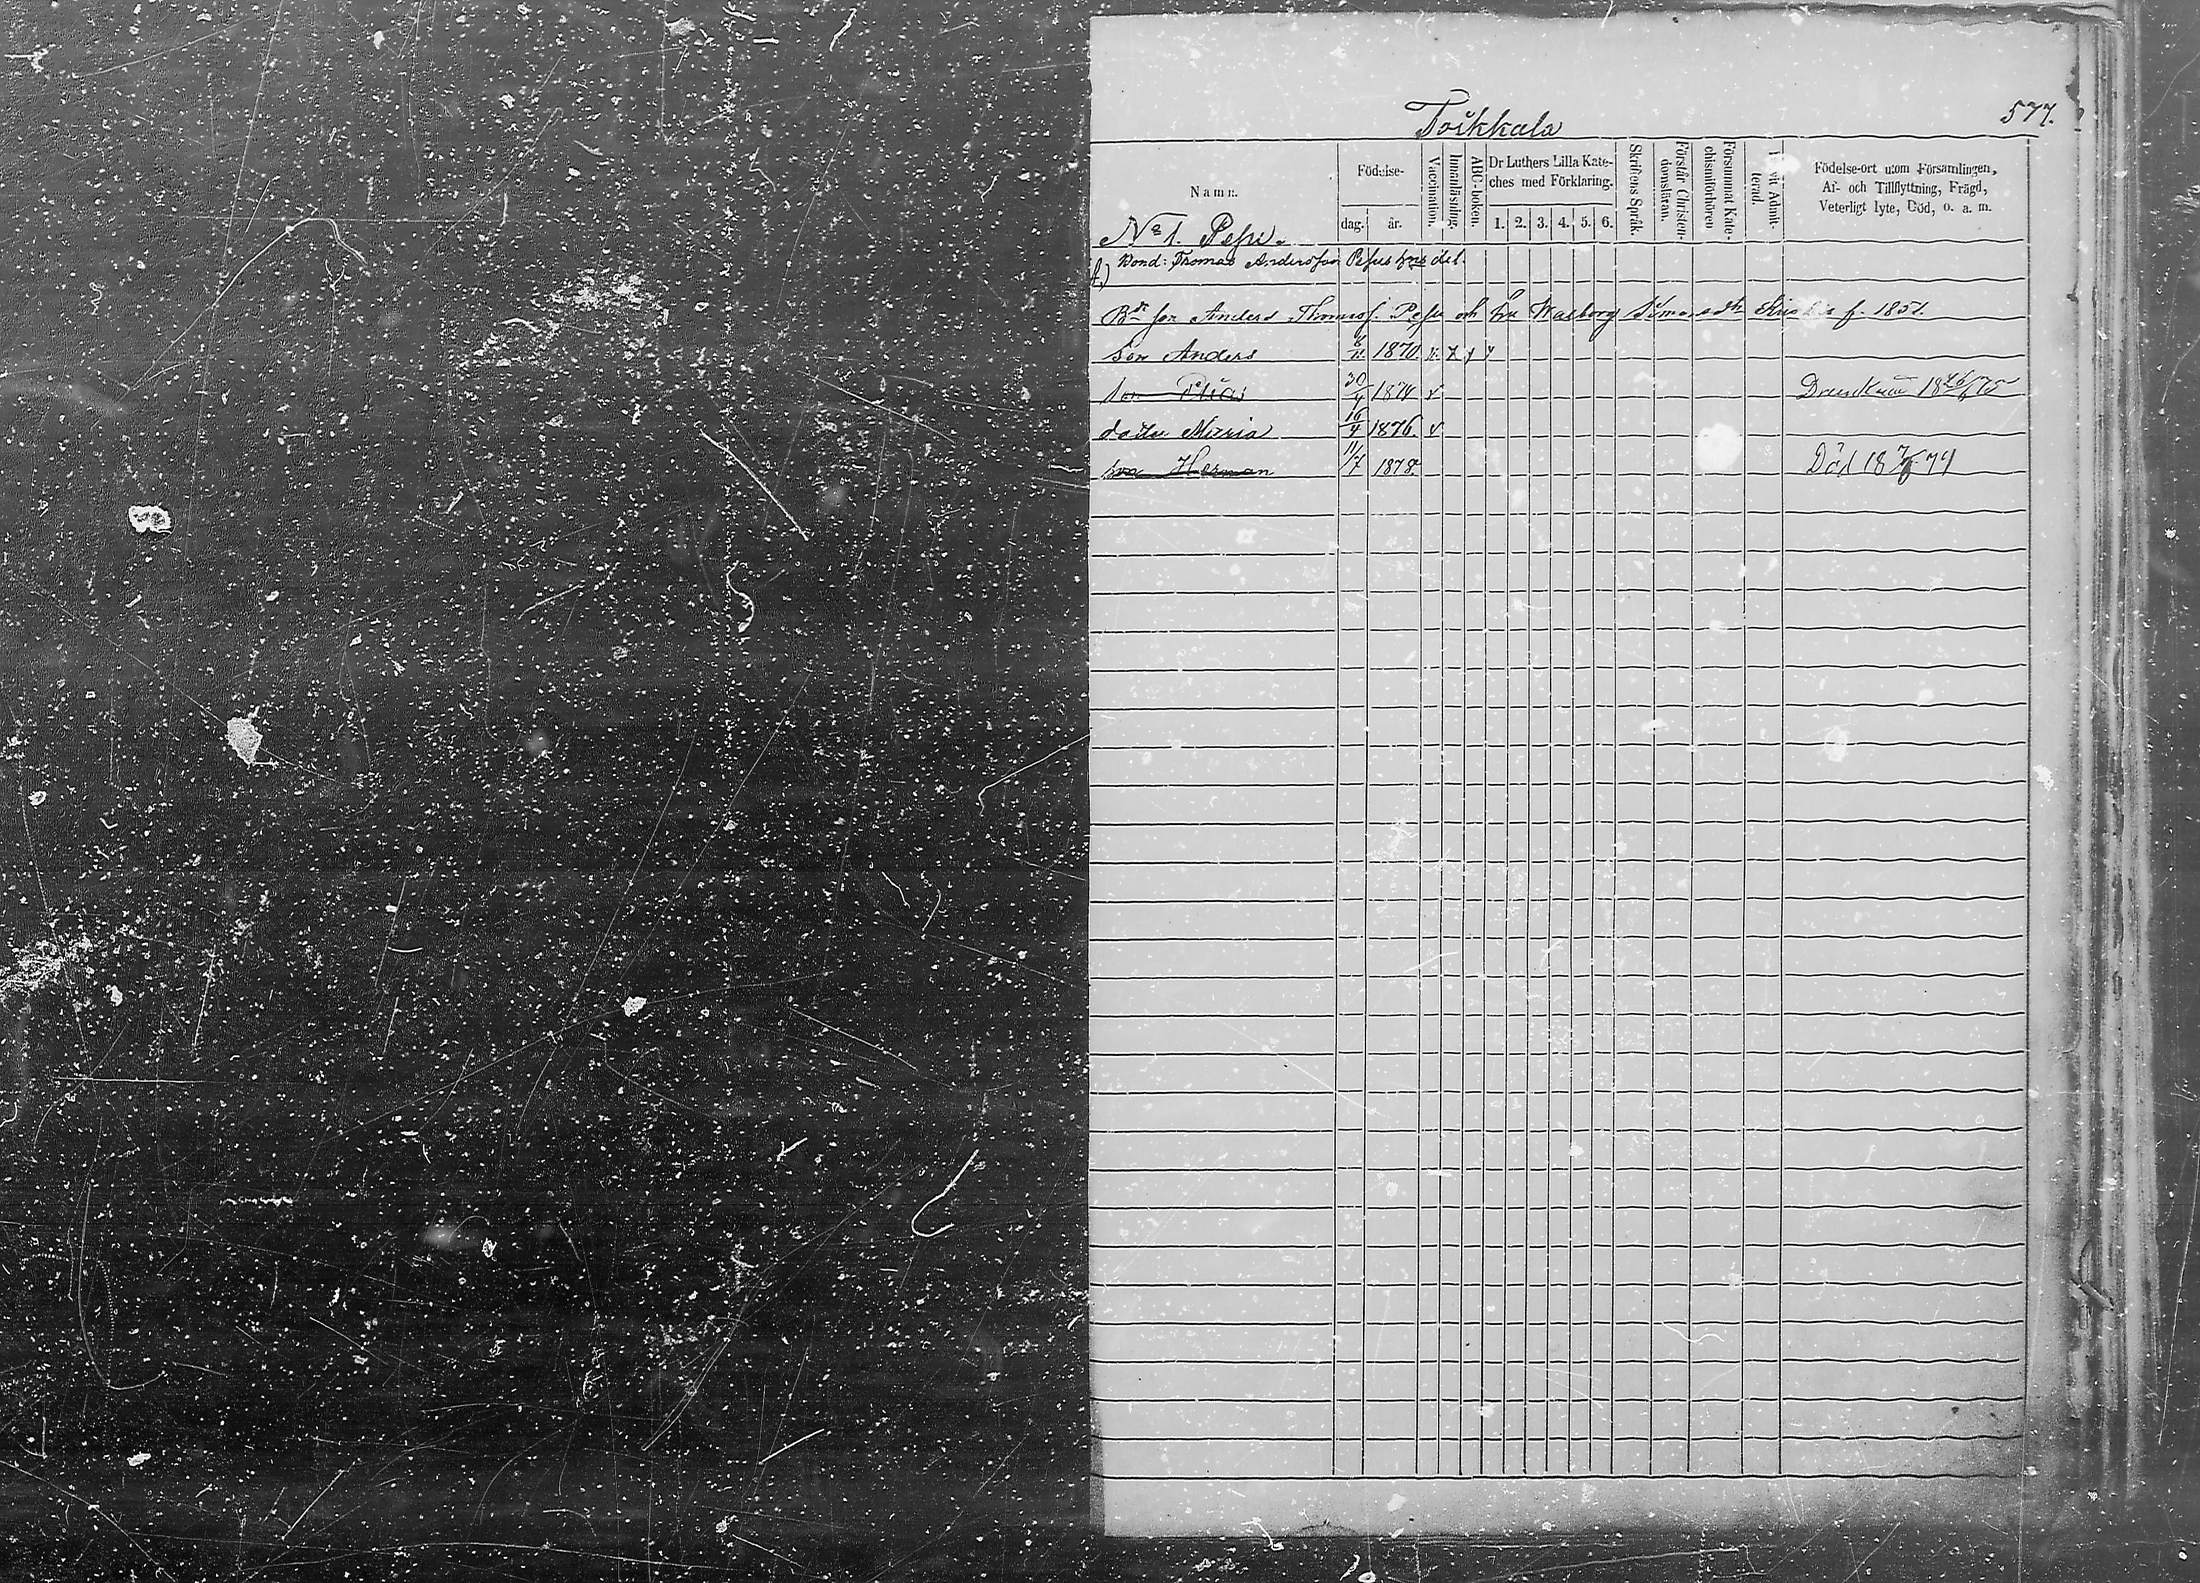 Toikkala
577.
Namn.
Födelse-
dag.
år.
Vaccination.
Innanläsning.
ABC-boken.
Dr Luthers Lilla Kate-
ches med Förklaring.
1. 2. 3. 4. 5. 6.
Skriftens Språk.
Förstår Christen-
domsläran.
Försummat Kate-
chismiförhören
Admit-
terad.
Födelse-ort utom Församlingen,
Af- och Tillflyttning, Frägd,
Veterligt lyte, Död, o. a. m.
No 1. Pessi.
Bond: Thomas Andersson Pesus hus del
Anders Thomas f. och Walborg Simonsdtr f. 1851.
Son Anders 1870
son 30 1874 v 1875
dottr Maria 16/4 1876. v
son Herman 11/7 1878 Död 18 79